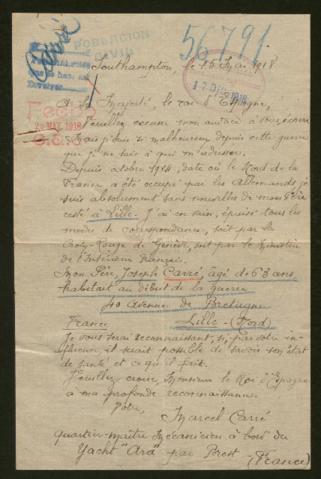 Carré
POBLACION
CIVIL
56791
Southampton, le 15 Mai 1918
A sa Majesté, le roi d'Espagne,
Veuillez excuser mon audace à vous écrire
mais je suis si malheureux depuis cette guerre
que je ne sais à qui m'adresser.
Depuis octobre 1914, date où le Nord de la
France a été occupé par les Allemands je
suis absolument sans nouvelles de mon Père
resté à Lille. J'ai en vain, épuisé tous les
modes de correspondance, soit par la
Croix-Rouge de Genève, soit par le Ministère
de l'Intérieur Français.
Mon Père, Joseph Carré, âgé de 63 ans
habitait au début de la Guerre
40 Avenue de Bretagne
Lille-(Nord)
France
Je vous serai reconnaissant, si, par votre in-
fluence, il serait possible de savoir son état
de santé et ce qu'il fait.
Veuillez croire, Monsieur le Roi d'Espagne
à ma profonde reconnaissance.
Marcel Carré
Quartier-maître Mécanicien à bord du
Yacht "Ara" par Brest (France)